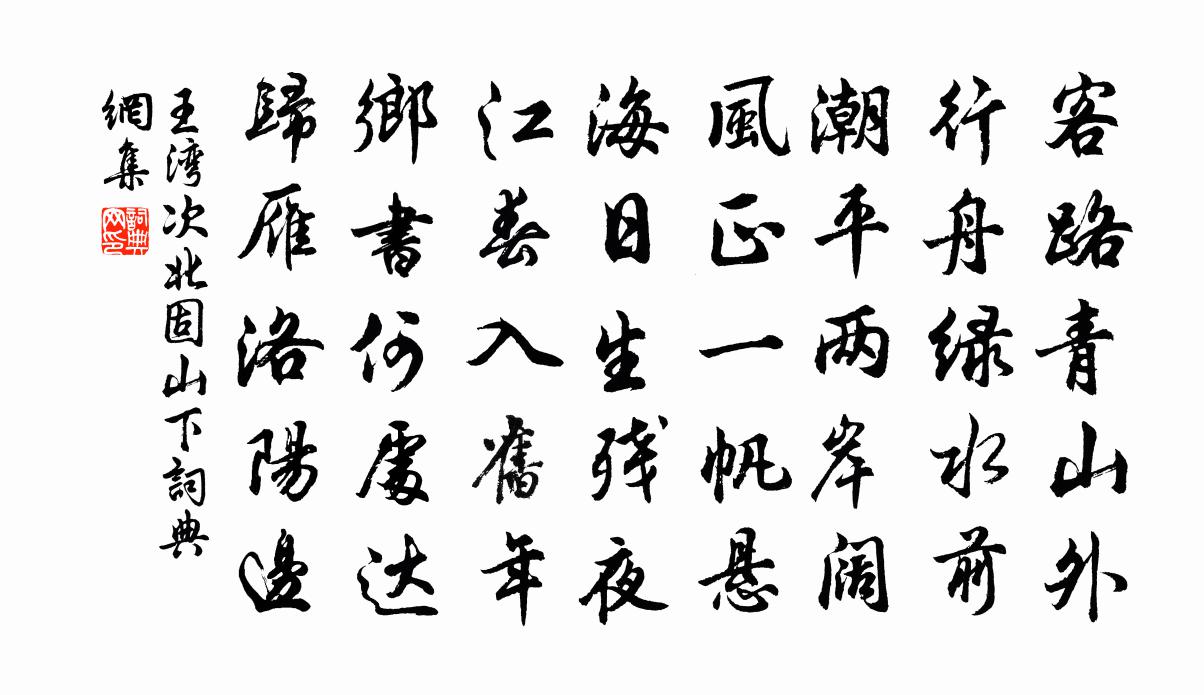 客路青山外
行舟绿水前
潮平两岸阔
風正一帆悬
海日生残夜
江春入舊年
鄉書何處达
歸雁洛陽邊
王湾次北固山下詞典
網集
詞典
网印